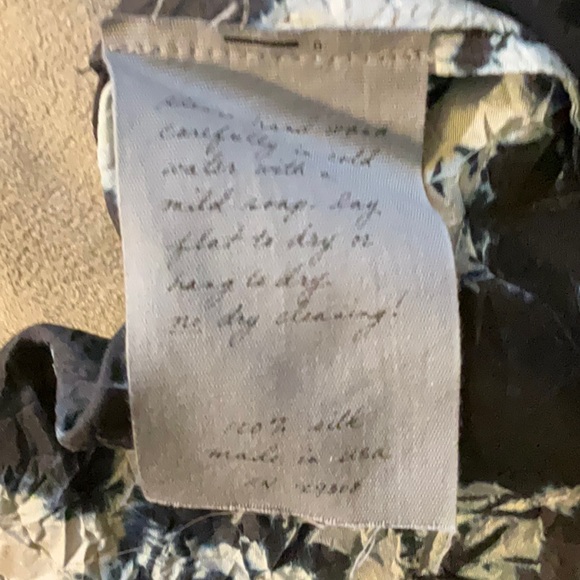 please hand wash
carefully in cold
water with a
mild soap. Lay
flat to dry or
hang to dry.
no dry cleaning!
100% silk
made in USA
RN